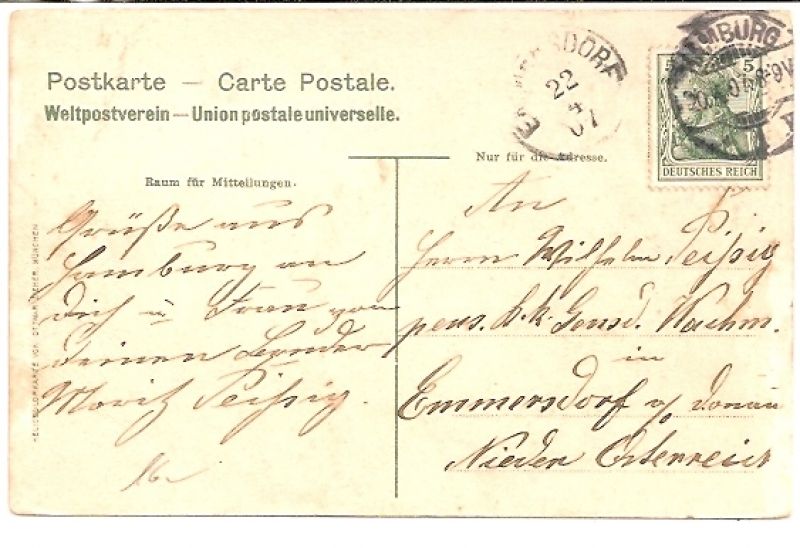 Postkarte — Carte Postale.
Weltpostverein — Union postale universelle.
EMMERSDORF
22
4
07
HAMBURG
5 5
DEUTSCHES REICH
Nur für die Adresse.
Raum für Mitteilungen.
Grüße aus
Hamburg an
Dich u Frau von
deinen Bruder
Moritz Peißig.
An
Herrn Wilhelm Peißig
pens. k. k. Gensd. Wachm.
in
Emmersdorf a/ Donau
Nieder Österreich